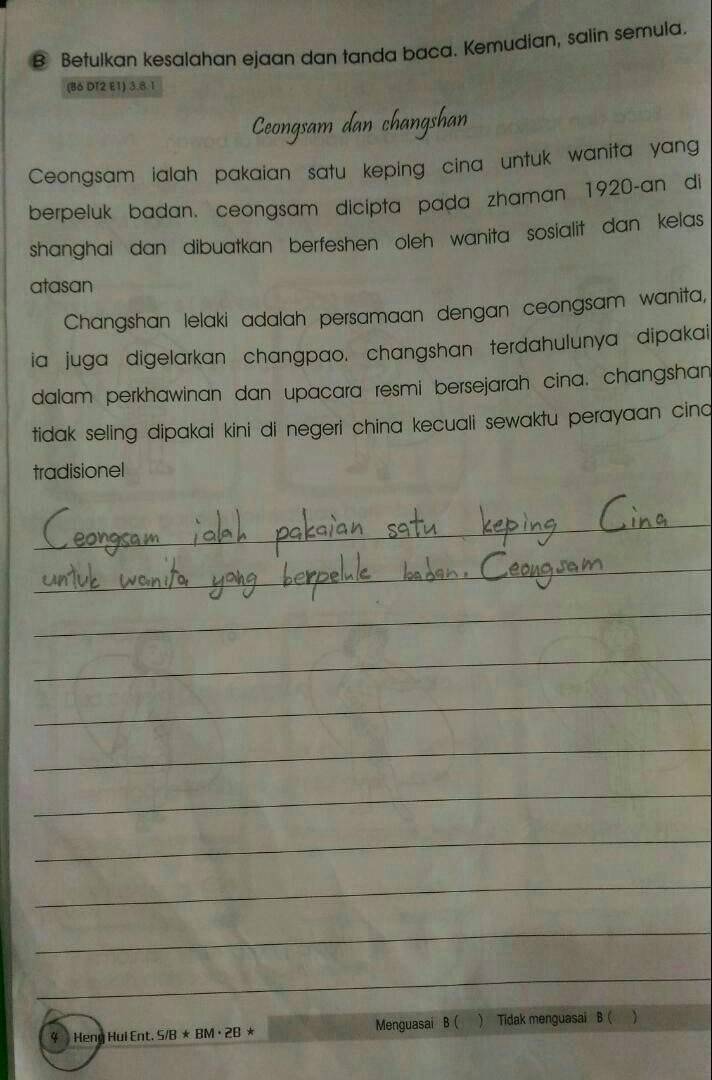 B Betulkan kesalahan ejaan dan tanda baca. Kemudian, salin semula.
(B6 DT2 E1) 3.8.1
Ceongsam dan changshan
Ceongsam ialah pakaian satu keping cina untuk wanita yang
berpeluk badan. ceongsam dicipta pada zhaman 1920-an di
shanghai dan dibuatkan berfeshen oleh wanita sosialit dan kelas
atasan
Changshan lelaki adalah persamaan dengan ceongsam wanita,
ia juga digelarkan changpao. changshan terdahulunya dipakai
dalam perkhawinan dan upacara resmi bersejarah cina. changshan
tidak seling dipakai kini di negeri china kecuali sewaktu perayaan cina
tradisionel
Ceongsam ialah pakaian satu keping Cina
untuk wanita yang berpeluk badan. Ceongsam
4 Heng Hui Ent. S/B ★ BM · 2B ★ Menguasai B ( ) Tidak menguasai B ( )